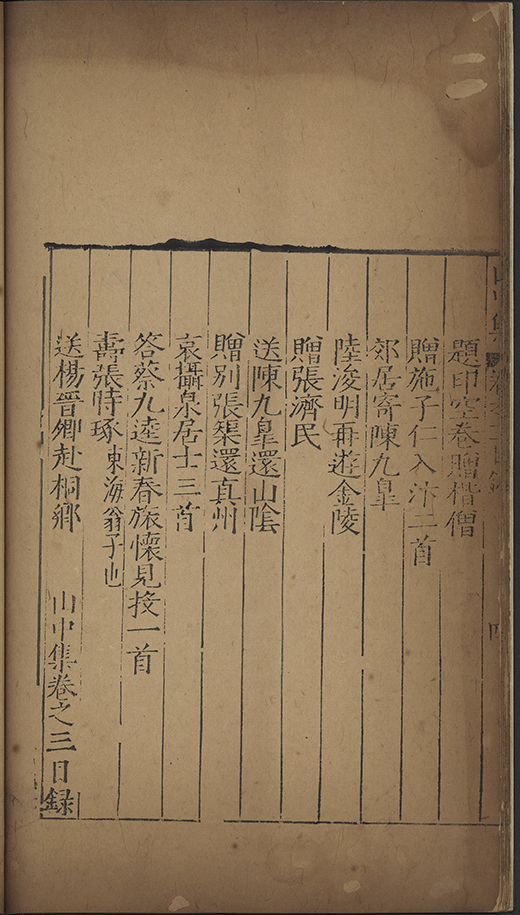 題印空卷贈楷僧
贈施子仁入汴二首
郊居寄陳九皇
陸浚明再遊金陵
贈張濟民
送陳九皇還山陰
贈別張渠還真州
哀攝泉居士三首
答蔡九逵新春旅懷見投一首
壽張時琢東海翁子也
送楊晉卿赴桐鄉 山中集卷之三目録